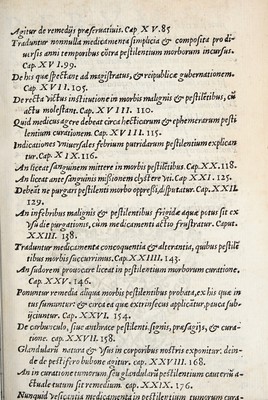 Agitur de remedijs præseruatiuis. Cap XV. 85
Traduntur nonnulla medicamenta simplicia & composita pro di-
uersis anni temporibus cōtra pestilentium morborum incursus.
Cap. XVI. 99.
De his quæ spectant ad magistratus, & reipublicæ gubernationem.
Cap. XVII. 105.
De recta victus institutione in morbis malignis & pestilētibus, cū
actu molestant. Cap. XVIII. 110.
Quid medicus agere debeat circa hecticarum & ephemerarum pesti
lentium curationem. Cap. XVIII. 115.
Indicationes vniuersales febrium putridarum pestilentium explican
tur. Cap. XIX. 116.
An liceat sanguinem mittere in morbis pestilētibus. Cap. XX. 118.
An liceat ante sanguinis missionem clystere vti. Cap. XXI. 125.
Debeāt ne purgari pestilenti morbo oppressi, disputatur. Cap. XXII.
129.
An in febribus malignis & pestilentibus frigidæ aquæ potus sit ex
vsu die purgationis, cum medicamenti actio frustratur. Caput
XXIII. 138.
Traduntur medicamenta concoquentia & alterantia, quibus pestilē
tibus morbis succurrimus. Cap. XXIIII. 143.
An sudorem prouocare liceat in pestilentium morborum curatione.
Cap. XXV. 146.
Ponuntur remedia aliqua morbis pestilentibus probata, ex his quæ in
tus sumuntur: & circa ea quæ extrinsecus applicātur, pauca sub-
ijciuntur. Cap. XXVI. 154.
De carbunculo, siue anthrace pestilenti, signis, præsagijs, & cura-
tione. cap. XXVII. 158.
Glandularū natura & vsus in corporibus nostris exponitur: dein-
de de pestifero bubone agitur. cap. XXVIII. 168.
An in curatione tumorum seu glandularū pestilentium cauterij a-
ctuale tutum sit remedium. cap. XXIX. 176.
Nunquid vesicantia medicamenta in pestilentium tumorum cura-